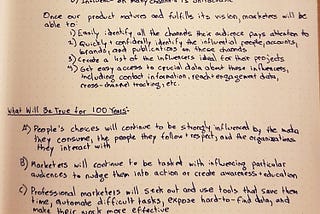 Once our product matures and fulfills its vision, marketers will be
able to:
1) Easily identify all the channels their audience pays attention to
2) Quickly + confidently identify the influential people, accounts,
brands, and publications on those channels
3) Create a list of the influencers ideal for their projects
4) Get easy access to crucial data about those influencers,
including contact information, reach + engagement data,
cross-channel tracking, etc.
What Will Be True for 100 Years:
A) People's choices will continue to be strongly influenced by the media
they consume, the people they follow + respect, and the organizations
they interact with
B) Marketers will continue to be tasked with influencing particular
audiences to nudge them into action or create awareness + education
C) Professional marketers will seek out and use tools that save them
time, automate difficult tasks, expose hard-to-find data, and
make their work more effective